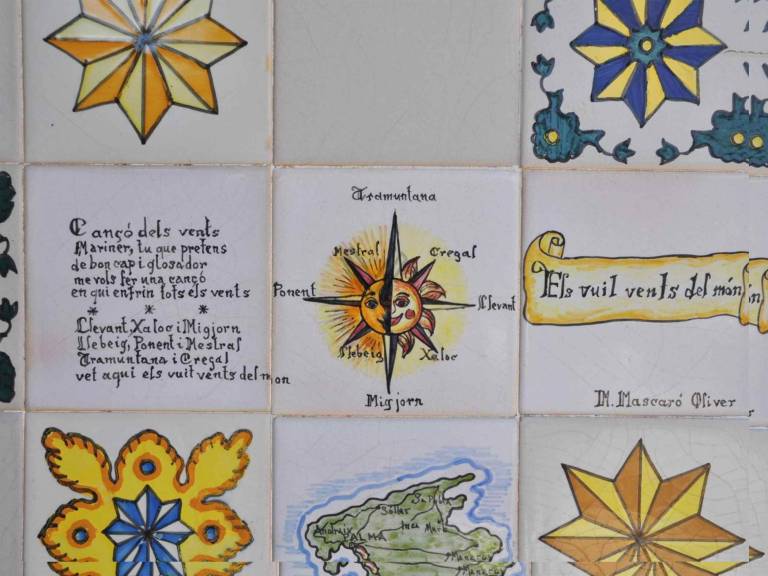 Cançó dels vents
Mariner, tu que pretens
de bon cap i glosador
me vols fer una cançó
en qui entrin tots els vents
* * *
Llevant Xaloc i Migjorn
Llebeig, Ponent i Mestral
Tramuntana i Gregal
vet aqui els vuit vents del mon
Tramuntana
Mestral
Gregal
Ponent
Llevant
Llebeig
Xaloc
Migjorn
Els vuit vents del món
M. Mascaró Oliver
Sa Pobla
Sóller
Inca
Andraix
Manacor
Manacor